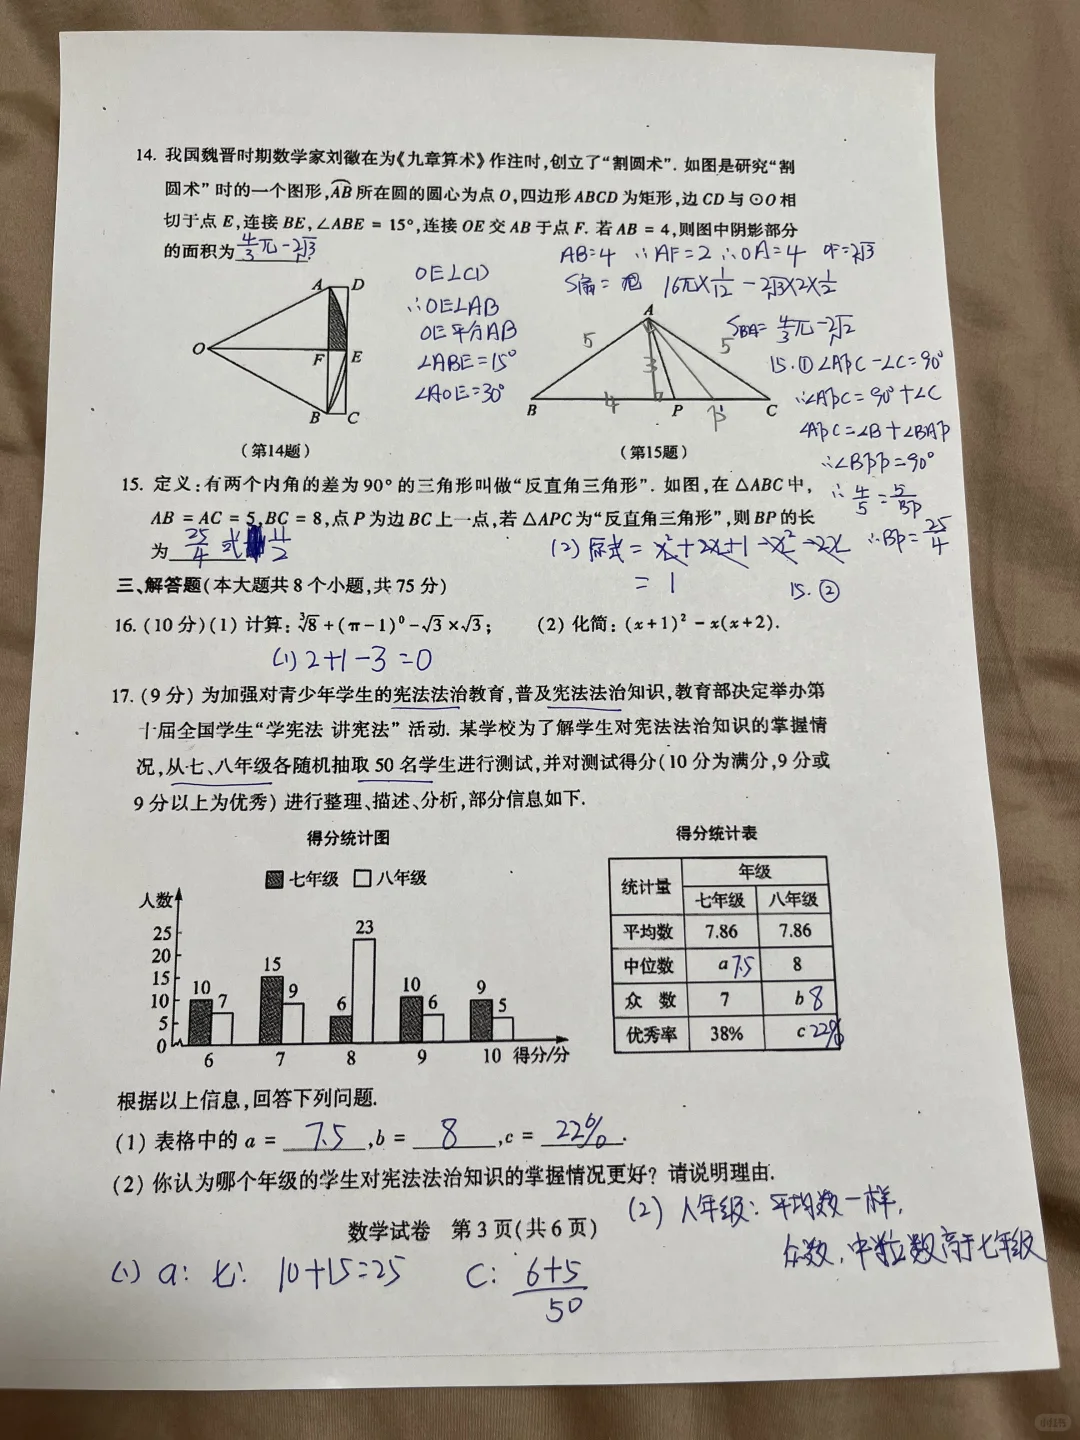 14. 我国魏晋时期数学家刘徽在为《九章算术》作注时,创立了“割圆术”. 如图是研究“割
圆术”时的一个图形,AB所在圆的圆心为点O,四边形ABCD为矩形,边CD与⊙O相
切于点E,连接BE,∠ABE = 15°,连接OE交AB于点F. 若AB = 4,则图中阴影部分
的面积为 4/3π-2√3 .
AB=4 ∴AF=2 ∴OA=4 OF=2√3
S扇= 16π×1/12 - 2√3×2×1/2
S阴A= 4/3π-2√2
OE⊥CD
∴OE⊥AB
OE平分AB
∠ABE=15°
∠AOE=30°
A D
O F E
B C
(第14题)
A
5 3 5
B 4 P P' C
(第15题)
15.① ∠APC-∠C=90°
∴∠APC=90°+∠C
∠APC=∠B+∠BAP
∴∠BPP=90°
∴4/5=5/BP
∴BP=25/4
15. 定义:有两个内角的差为90°的三角形叫做“反直角三角形”. 如图,在△ABC中,
AB = AC = 5,BC = 8,点P为边BC上一点,若△APC为“反直角三角形”,则BP的长
为 25/4 或 11/2
(2) 原式 = x²+2x+1-x²-2x
= 1
15.②
三、解答题(本大题共8个小题,共75分)
16. (10分)(1) 计算: ∛8+(π-1)⁰-√3×√3; (2) 化简: (x+1)²-x(x+2).
(1) 2+1-3=0
17. (9分) 为加强对青少年学生的宪法法治教育,普及宪法法治知识,教育部决定举办第
十届全国学生“学宪法 讲宪法”活动. 某学校为了解学生对宪法法治知识的掌握情
况,从七、八年级各随机抽取50名学生进行测试,并对测试得分(10分为满分,9分或
9分以上为优秀)进行整理、描述、分析,部分信息如下.
得分统计图
七年级 八年级
人数
25
20
15
10
5
0
10 7 15 9 6 23 10 6 9 5
6 7 8 9 10 得分/分
得分统计表
统计量 年级
七年级 八年级
平均数 7.86 7.86
中位数 a 7.5 8
众 数 7 b 8
优秀率 38% c 22%
根据以上信息,回答下列问题.
(1) 表格中的a = 7.5 ,b = 8 ,c = 22% .
(2) 你认为哪个年级的学生对宪法法治知识的掌握情况更好? 请说明理由.
(2) 八年级: 平均数一样,
众数、中位数高于七年级
数学试卷 第3页(共6页)
(1) a: 七: 10+15=25 C: 6+5/50